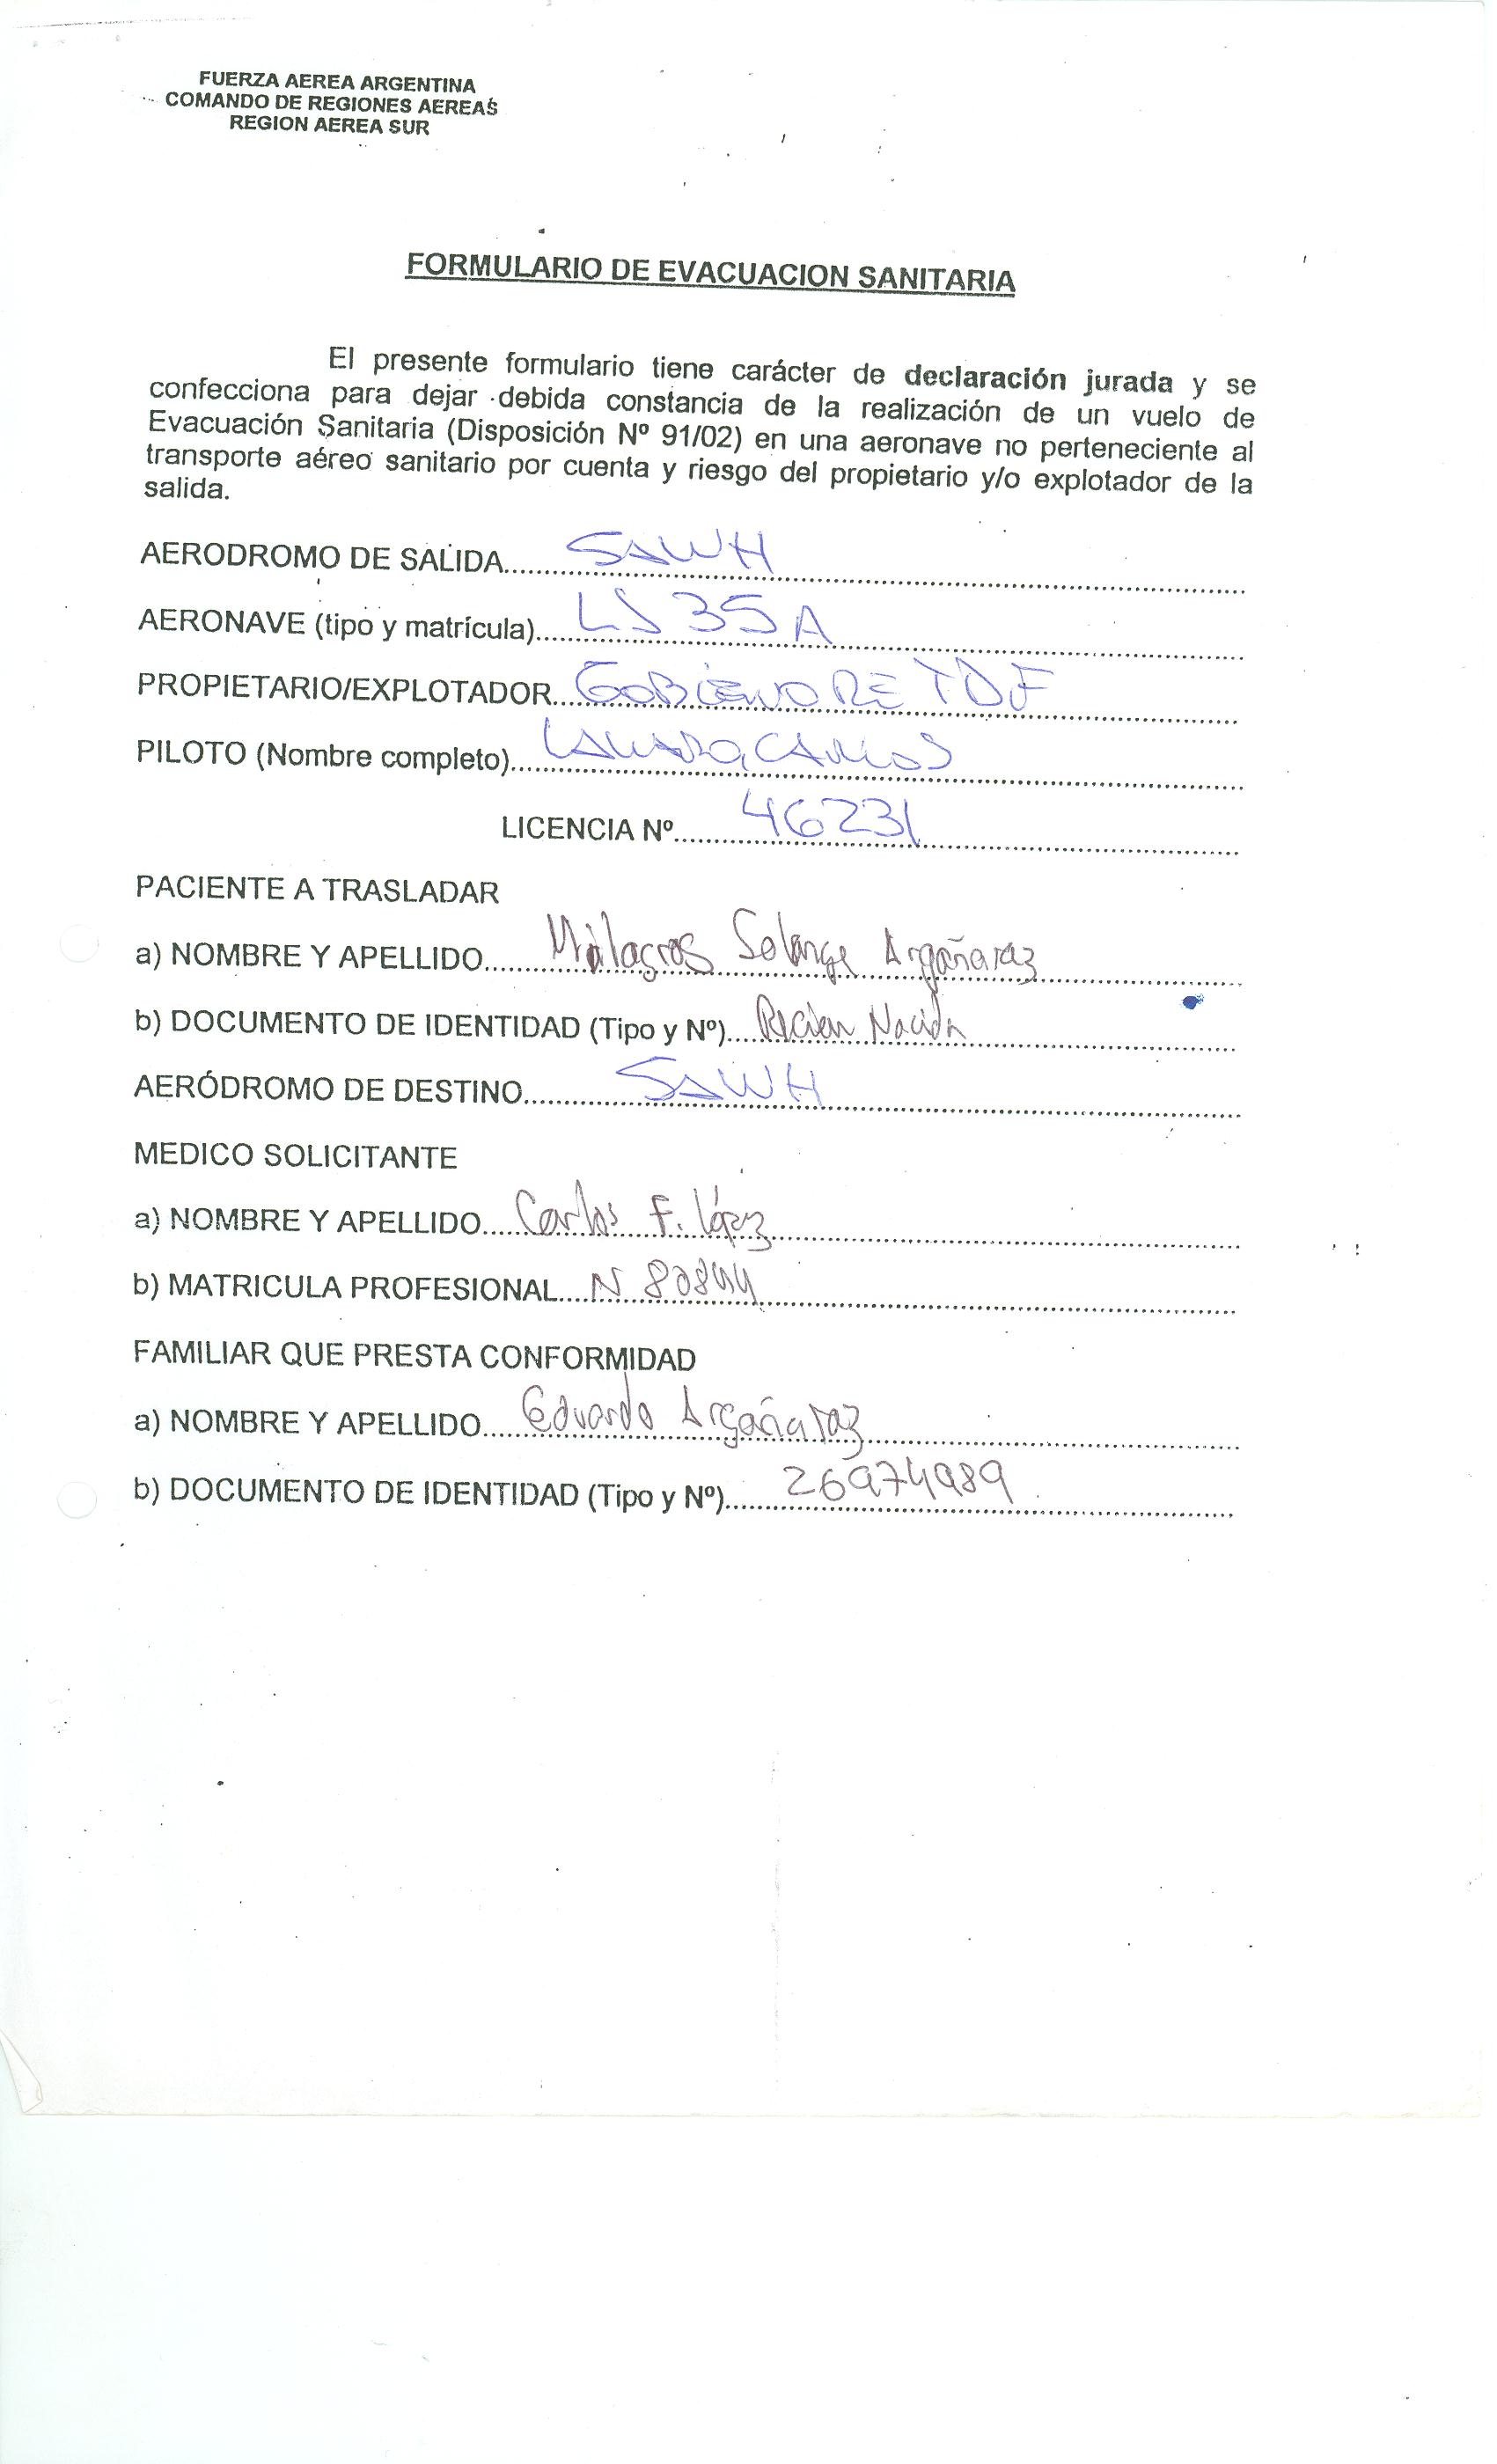 FUERZA AEREA ARGENTINA
COMANDO DE REGIONES AEREAS
REGION AEREA SUR
FORMULARIO DE EVACUACION SANITARIA
El presente formulario tiene carácter de declaración jurada y se
confecciona para dejar debida constancia de la realización de un vuelo de
Evacuación Sanitaria (Disposición Nº 91/02) en una aeronave no perteneciente al
transporte aéreo sanitario por cuenta y riesgo del propietario y/o explotador de la
salida.
AERODROMO DE SALIDA SAWH
AERONAVE (tipo y matrícula) LJ 35 A
PROPIETARIO/EXPLOTADOR GOBIERNO DE TDF
PILOTO (Nombre completo) CARLOS
LICENCIA Nº 46231
PACIENTE A TRASLADAR
a) NOMBRE Y APELLIDO Milagros Solange Argañaraz
b) DOCUMENTO DE IDENTIDAD (Tipo y Nº) Recien Nacida
AERÓDROMO DE DESTINO SAWH
MEDICO SOLICITANTE
a) NOMBRE Y APELLIDO Carlos F. López
b) MATRICULA PROFESIONAL N 80844
FAMILIAR QUE PRESTA CONFORMIDAD
a) NOMBRE Y APELLIDO Eduardo Argañaraz
b) DOCUMENTO DE IDENTIDAD (Tipo y Nº) 26974989